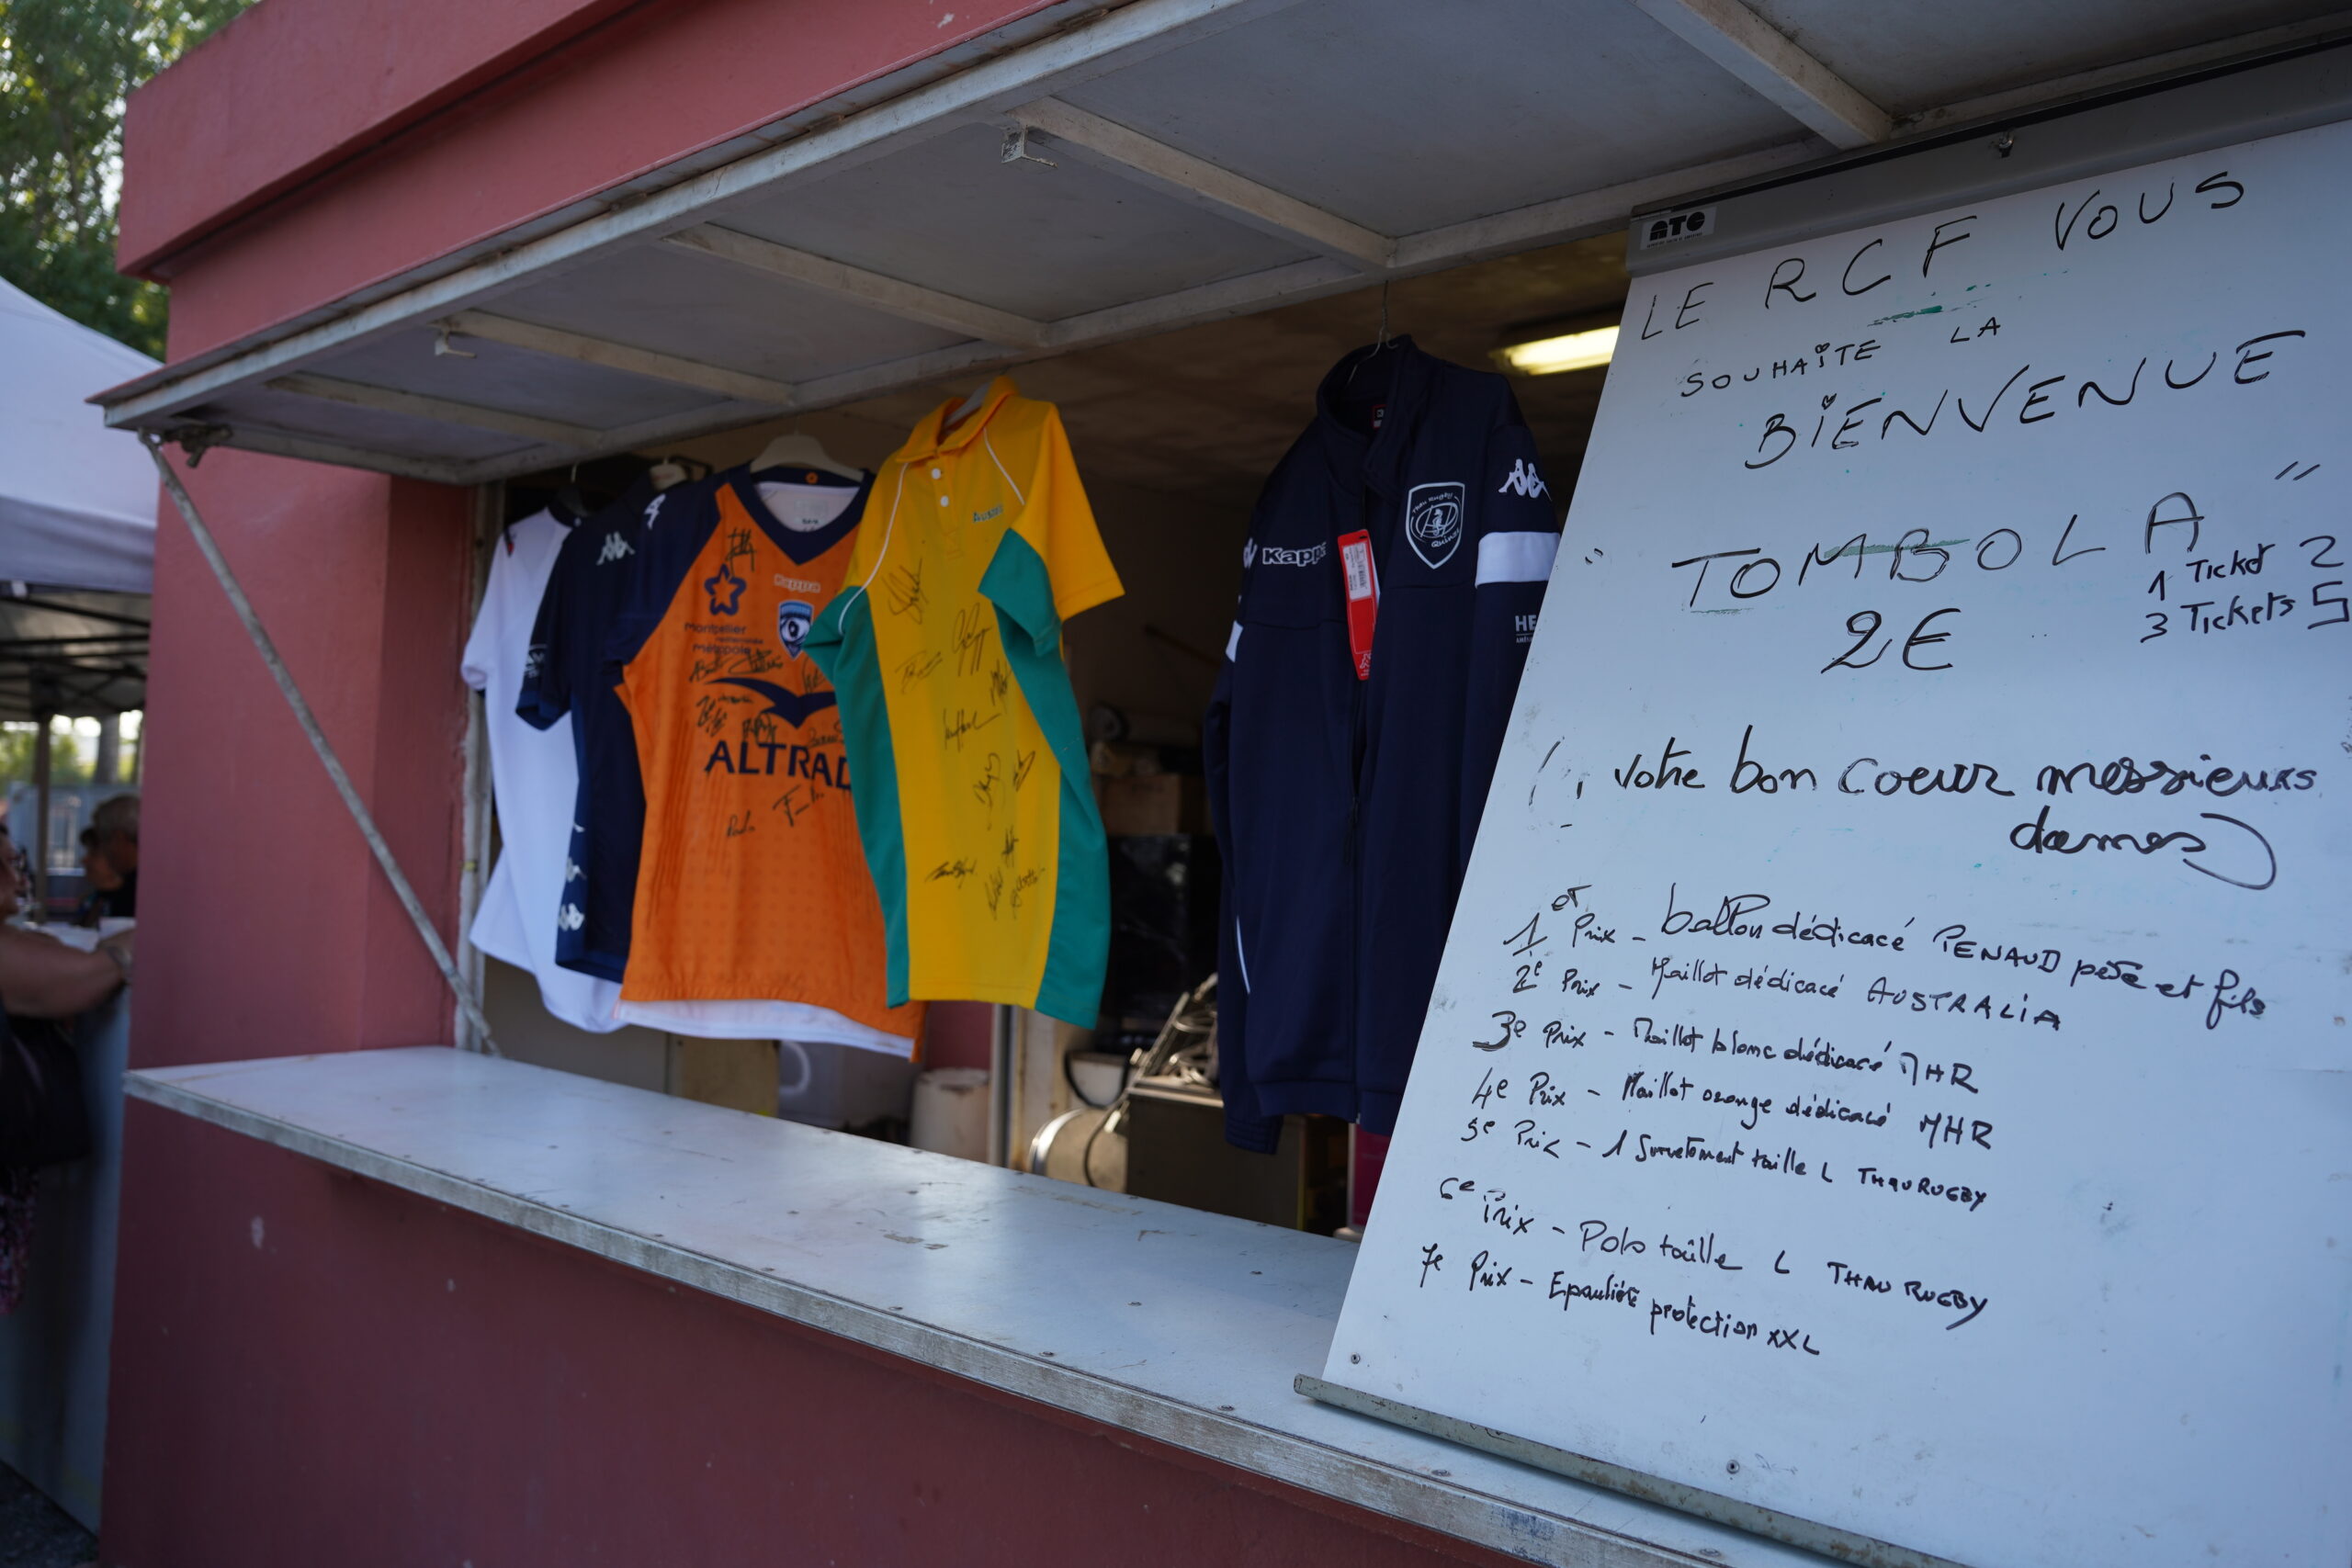 ATC
LE RCF VOUS
SOUHAITE LA
BIENVENUE
" TOMBOLA "
2€
1 Ticket 2
3 Tickets 5
(, votre bon coeur messieurs
dames)
1er Prix - ballon dédicacé PENAUD père et fils
2e Prix - Maillot dédicacé AUSTRALIA
3e Prix - Maillot blanc dédicacé MHR
4e Prix - Maillot orange dédicacé MHR
5e Prix - 1 Survetement taille L THAU RUGBY
6e Prix - Polo taille L THAU RUGBY
7e Prix - Epaulière protection XXL
Kappa
Montpellier
Méditerranée
Métropole
ALTRAD
Kappa
Thau Rugby